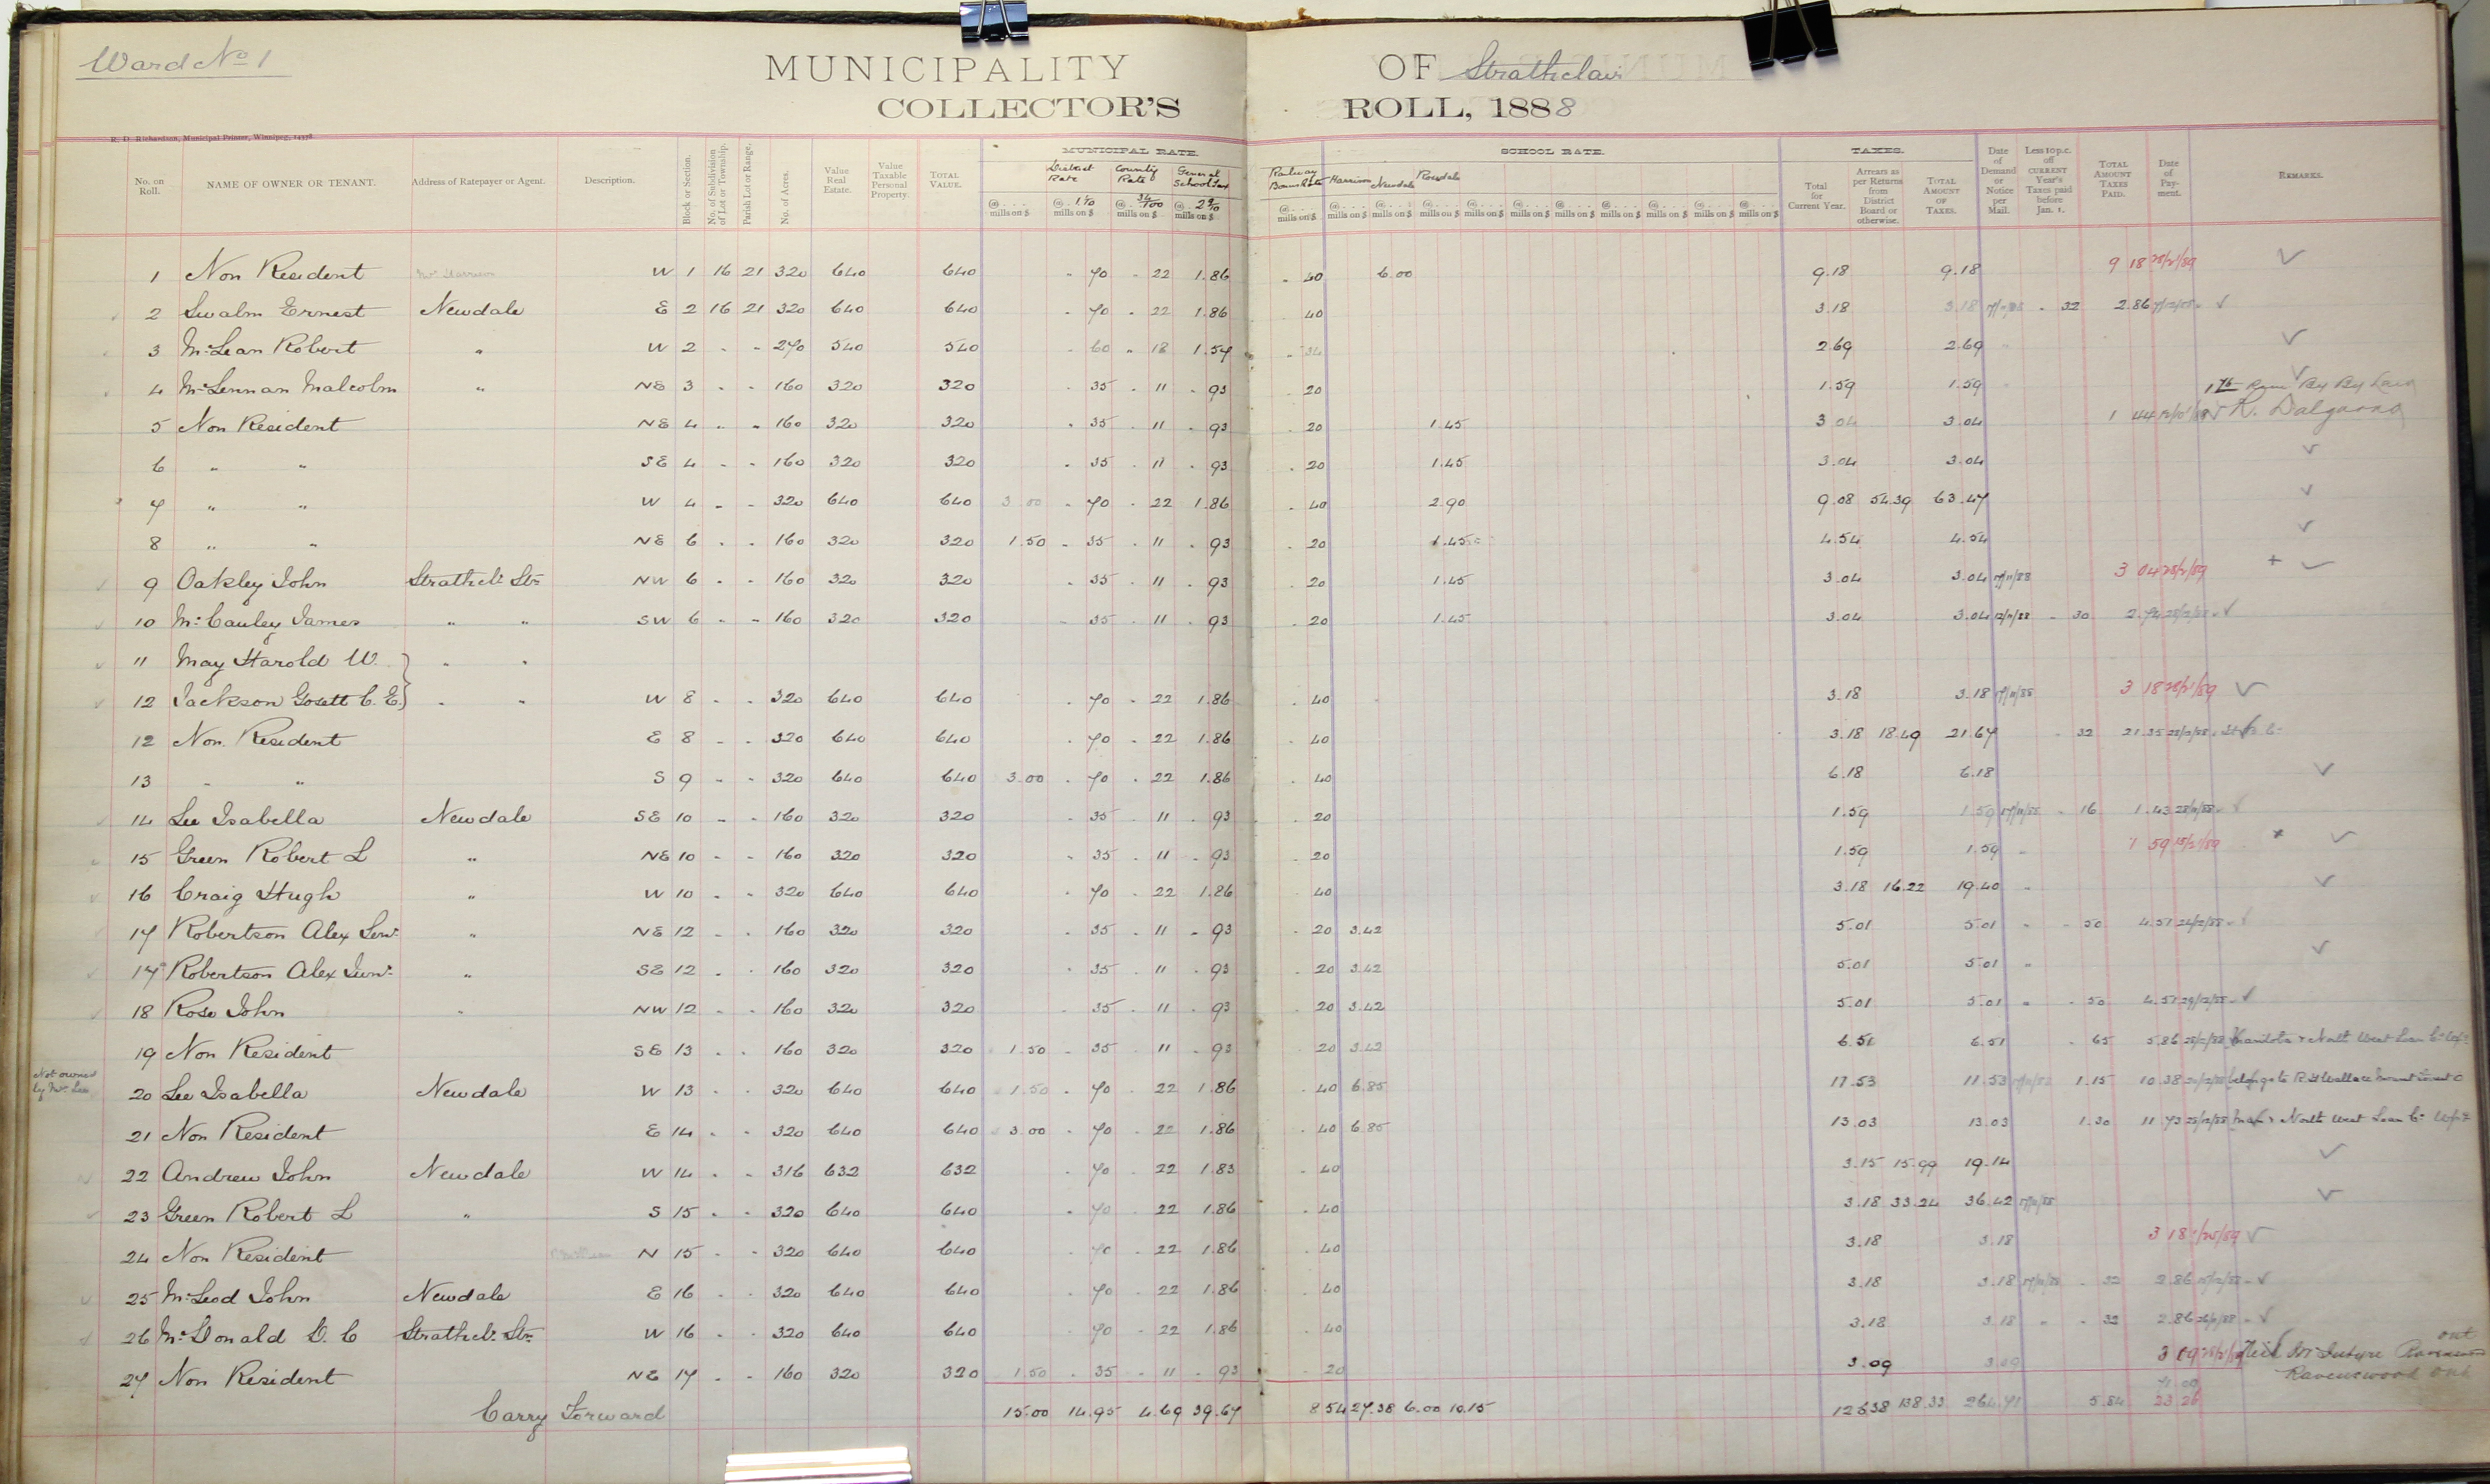 Ward No 1
MUNICIPALITY OF Strathclair
COLLECTOR'S ROLL, 1888
R. D. Richardson, Municipal Printer, Winnipeg, 14378.
No. on Roll. NAME OF OWNER OR TENANT. Address of Ratepayer or Agent. Description. Block or Section. No. of Subdivision of Lot or Township. Parish Lot or Range. No. of Acres. Value Real Estate. Value Taxable Personal Property. TOTAL VALUE. MUNICIPAL RATE. District Rate County Rate General School Tax Railway Bonus Rate SCHOOL RATE. Harrison Newdale Rosedale TAXES. Total for Current Year. Arrears as per Returns from District Board or otherwise. TOTAL AMOUNT OF TAXES. Date of Demand or Notice per Mail. Less 10 p.c. off CURRENT Year's Taxes paid before Jan. 1. TOTAL AMOUNT TAXES PAID. Date of Payment. REMARKS.
1 Non Resident W 1 16 21 320 640 640 70 22 1.86 40 6.00 9.18 9.18 9 18
2 Swalm Ernest Newdale E 2 16 21 320 640 640 70 22 1.86 40 3.18 3.18 32 2.86
3 McLean Robert " W 2 " " 270 540 540 60 18 1.57 34 2.69 2.69
4 McLennan Malcolm " NE 3 " " 160 320 320 35 11 93 20 1.59 1.59
5 Non Resident NE 4 " " 160 320 320 35 11 93 20 1.45 3.04 3.04 1 44
6 " " SE 4 " " 160 320 320 35 11 93 20 1.45 3.04 3.04
7 " " W 4 " " 320 640 640 3.00 70 22 1.86 40 2.90 9.08 54.39 63.47
8 " " NE 6 " " 160 320 320 1.50 35 11 93 20 1.45 4.54 4.54
9 Oakley John Strathcl. Stn NW 6 " " 160 320 320 35 11 93 20 1.45 3.04 3.04 17/11/88 3 04
10 McCauley James " " SW 6 " " 160 320 320 35 11 93 20 1.45 3.04 3.04 30 2.74
11 May Harold W. " "
12 Jackson Gosett C. E. " " W 8 " " 320 640 640 70 22 1.86 40 3.18 3.18 17/11/88 3 18
12 Non Resident E 8 " " 320 640 640 70 22 1.86 40 3.18 18.49 21.67 32 21.35
13 " " S 9 " " 320 640 640 3.00 70 22 1.86 40 6.18 6.18
14 Lee Isabella Newdale SE 10 " " 160 320 320 35 11 93 20 1.59 1.59 17/11/88 16 1.43
15 Green Robert L " NE 10 " " 160 320 320 35 11 93 20 1.59 1.59 1 59
16 Craig Hugh " W 10 " " 320 640 640 70 22 1.86 40 3.18 16.22 19.40
17 Robertson Alex Senr " NE 12 " " 160 320 320 35 11 93 20 3.42 5.01 5.01 50 4.51
17a Robertson Alex Junr " SE 12 " " 160 320 320 35 11 93 20 3.42 5.01 5.01
18 Rose John " NW 12 " " 160 320 320 35 11 93 20 3.42 5.01 5.01 50 4.51
19 Non Resident SE 13 " " 160 320 320 1.50 35 11 93 20 3.42 6.51 6.51 65 5.86 Manitoba & North West Loan Co
Not owned by Mrs Lee
20 Lee Isabella Newdale W 13 " " 320 640 640 1.50 70 22 1.86 40 6.85 11.53 11.53 1.15 10.38 belongs to
21 Non Resident E 14 " " 320 640 640 3.00 70 22 1.86 40 6.85 13.03 13.03 1.30 11.73 Man & North West Loan Co
22 Andrew John Newdale W 14 " " 316 632 632 70 22 1.83 40 3.15 15.99 19.14
23 Green Robert L " S 15 " " 320 640 640 70 22 1.86 40 3.18 33.24 36.42 17/11/88
24 Non Resident N 15 " " 320 640 640 70 22 1.86 40 3.18 3.18 3 18
25 McLeod John Newdale E 16 " " 320 640 640 70 22 1.86 40 3.18 3.18 17/11/88 32 2.86
26 McDonald D. C Strathcl. Stn W 16 " " 320 640 640 70 22 1.86 40 3.18 3.18 32 2.86
27 Non Resident NE 17 " " 160 320 320 1.50 35 11 93 20 3.09 3.09 3 09 Ravenswood Ont
Carry Forward 15.00 14.95 4.69 39.67 8.54 27.38 6.00 10.15 126.38 138.33 264.71 5.84